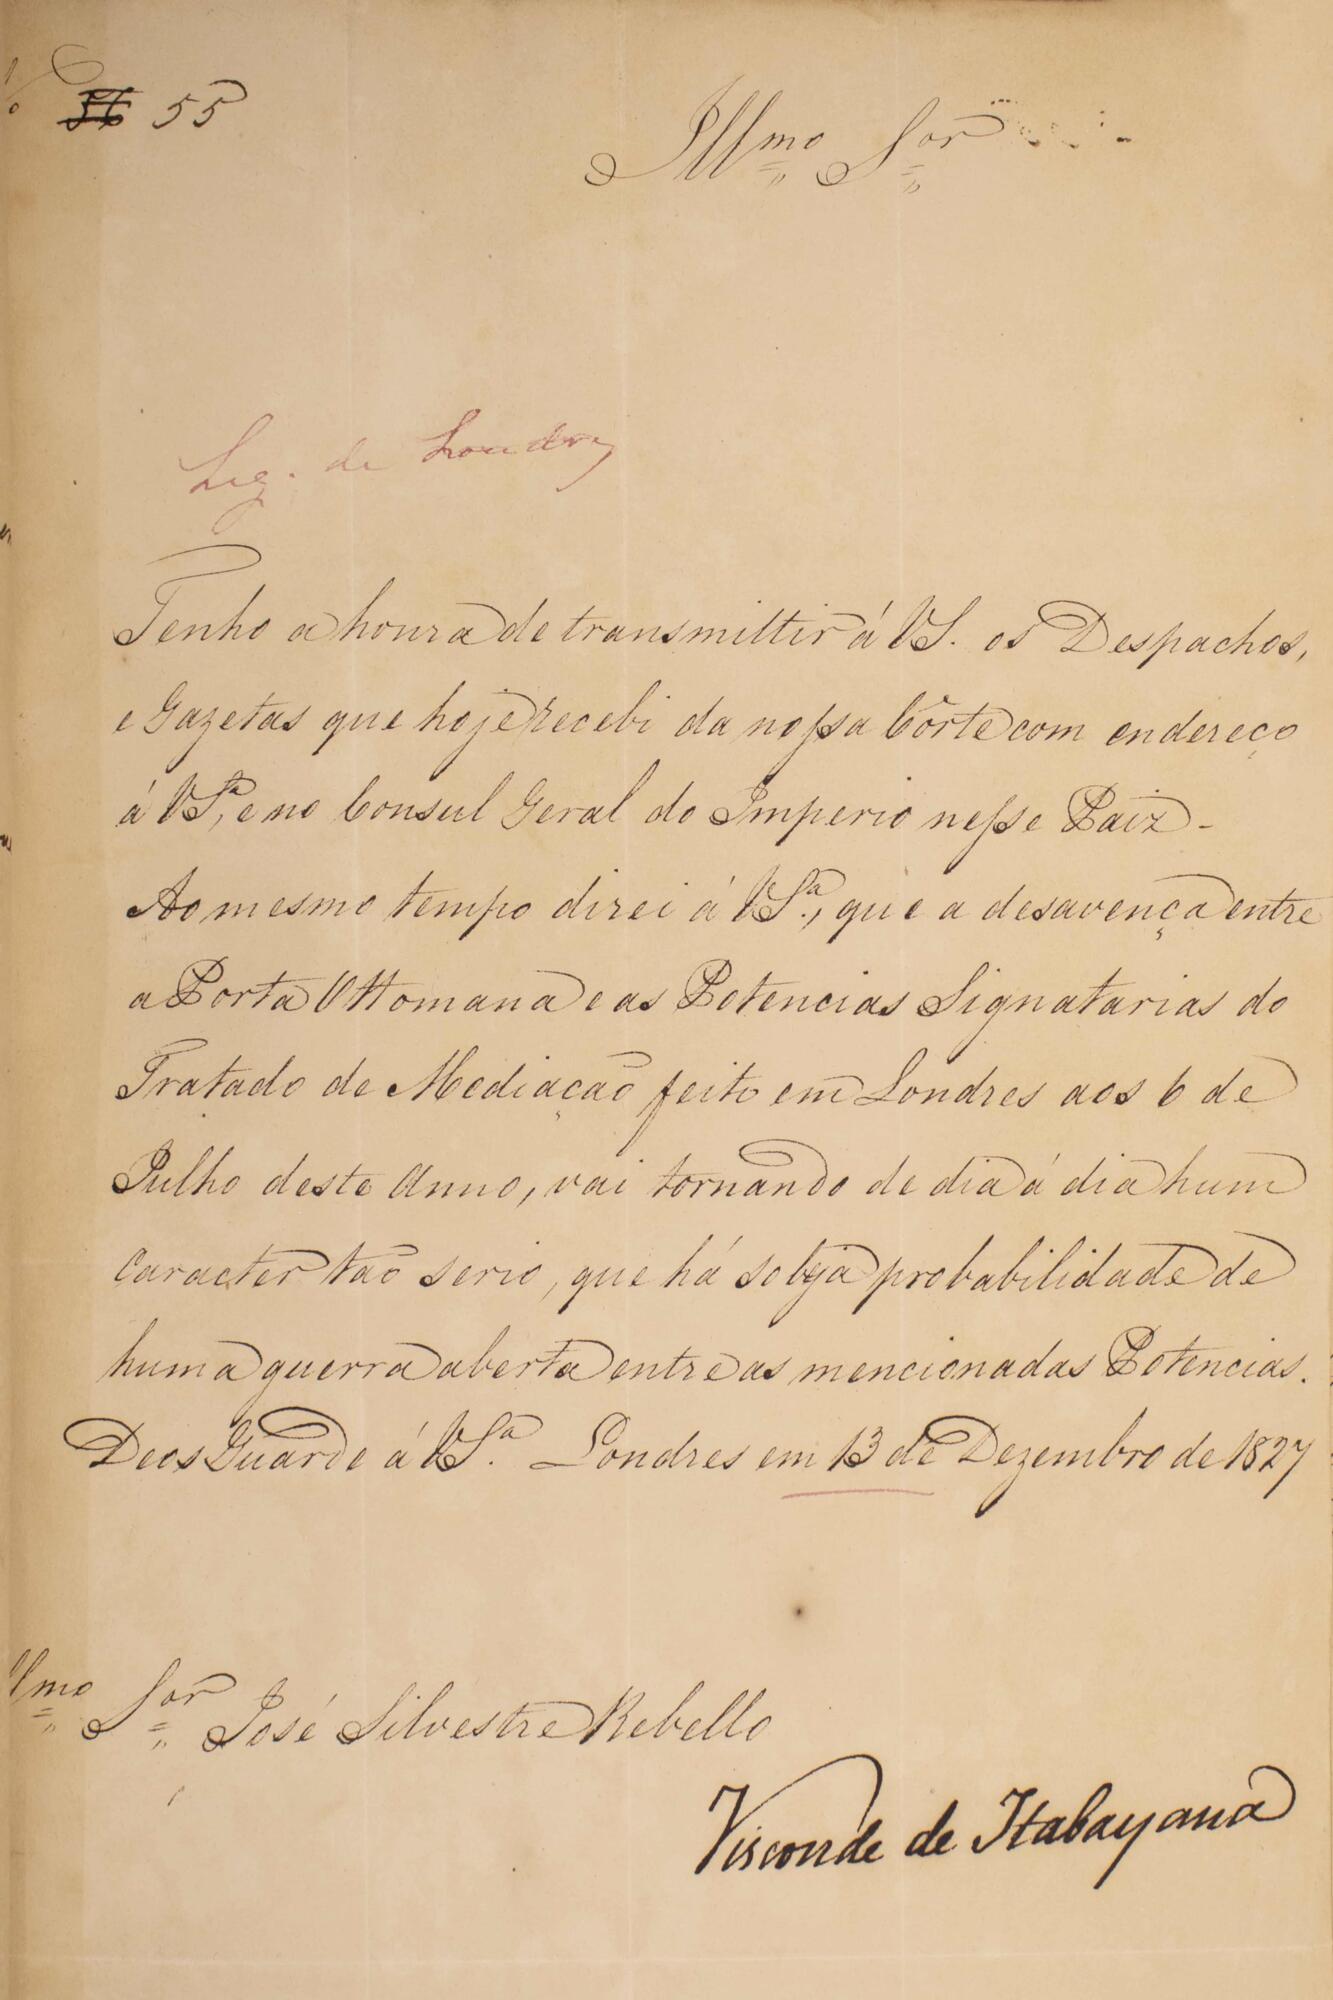 55
Illmo Sor
Leg. de Londres
Tenho a honra de transmittir á VS. os Despachos,
e Gazetas que hoje recebi da nossa Côrte com endereço
á VSa, e no Consul Geral do Imperio nesse Paiz -
Ao mesmo tempo direi á VSa., que a desavença entre
a Porta Ottomana e as Potencias Signatarias do
Tratado de Mediação feito em Londres aos 6 de
Julho deste Anno, vai tornando de dia á dia hum
caracter tão serio, que há sobeja probabilidade de
huma guerra aberta entre as mencionadas Potencias.
Deos Guarde á VSa. Londres em 13 de Dezembro de 1827
Illmo Sor José Silvestre Rebello
Visconde de Itabayana